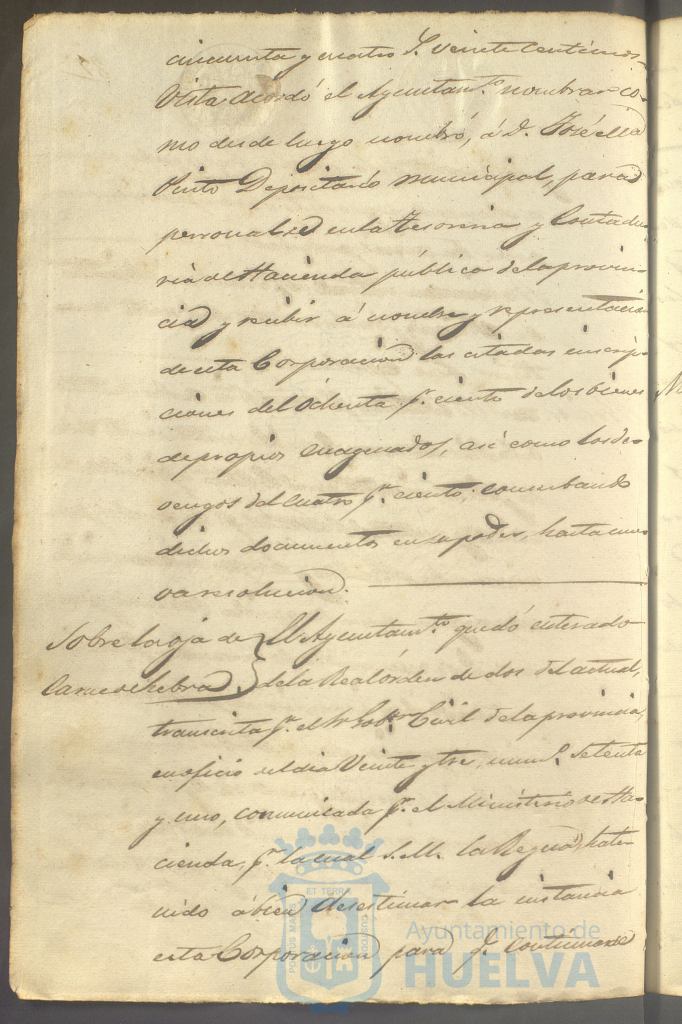 cincuenta y cuatro r.s veinte centimos
Vista acordó el Ayuntam.to nombrar co-
mo desde luego nombró, á D. José
Pinto Depositario municipal, para q.
personalse en la Tesoreria y Contadu-
ria de Hacienda pública de la provin-
cia y recibir á nombre y representacion
de esta Corporacion las citadas inscrip-
ciones del Ochenta p.r ciento de los bienes
de propios enagenados, asi como los de-
vengos del cuatro p.r ciento; conserbando
dichos documentos en su poder, hasta nue-
va resolucion.
Sobre la oja de
El Ayuntam.to quedó enterado
de la Real órden de dos del actual,
transcrita p.r el Sr. Gob.or Civil de la provincia,
en oficio del dia Veinte y tres, num.o Setenta
y uno, comunicada p.r el Ministerio de Ha-
cienda, p.r la cual S.M. la Reyna, ha te-
nido á bien desestimar la instancia
esta Corporacion para q. continuase
PORTUS MARIS ET TERRAE CUSTODIA
Ayuntamiento de
HUELVA